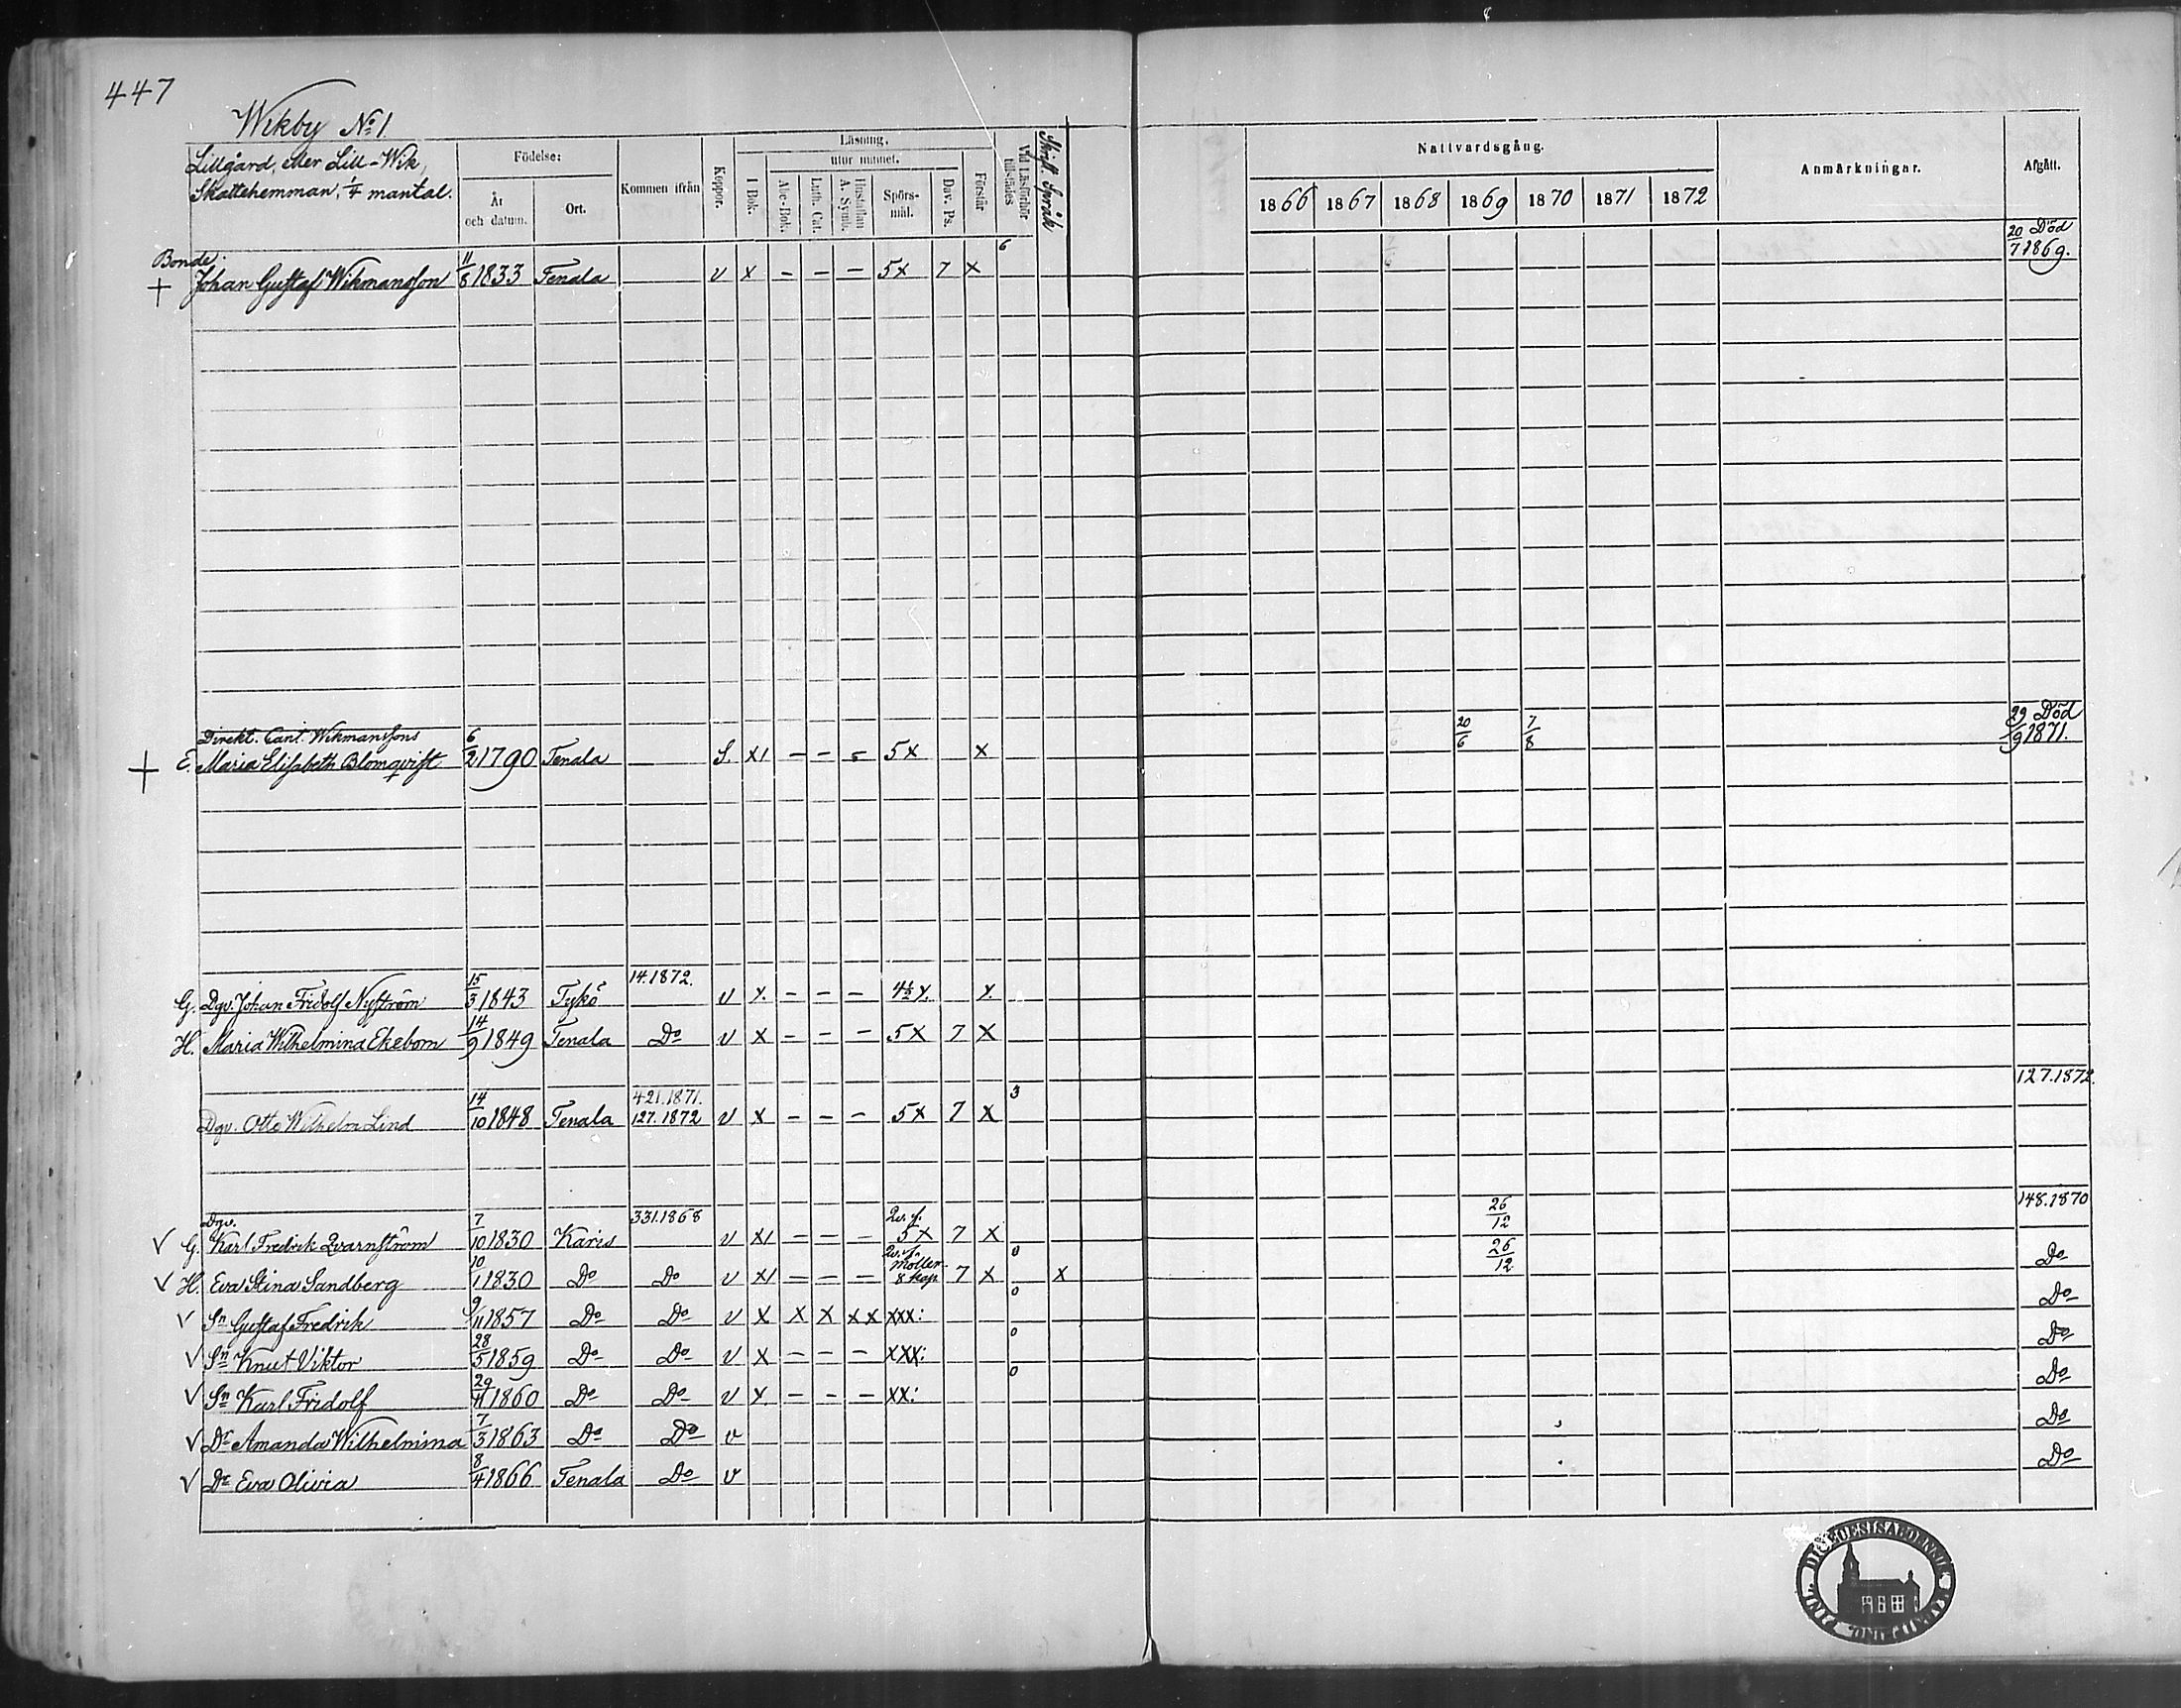 447
Wikby No 1
Lillgård, eller Lill-Wik,
Skattehemman, 1/4 mantal.
Födelse:
År och datum.
Ort.
Kommen ifrån
Koppor.
Läsning.
I Bok.
utur minnet.
Abc-Bok.
Luth. Cat.
Hustaflan A. Symb.
Spörsmål.
Dav. Ps.
Förstår
Vid Läsförhör tillstädes
Skrift. Språk
Nattvardsgång.
1866 1867 1868 1869 1870 1871 1872
Anmärkningar.
Afgått.
Bonde
+ Johan Gustaf Wikmansson 11/8 1833 Tenala v x - - - 5x 7 x 6 7/6 20/7 Död 1869.
Direkt. Cant. Wikmanssons
+ E. Maria Elisabeth Blomqvist 6/2 1790 Tenala S. x1 - - - 5x x 7/6 20/6 7/8 29/9 Död 1871.
G. Dgv. Johan Fridolf Nyström 15/3 1843 Tykö 14.1872. v x. - - - 4½ x. x.
H. Maria Wilhelmina Ekebom 14/9 1849 Tenala Do v x - - - 5x 7 x
Dgv. Otto Wilhelm Lind 14/10 1848 Tenala 421.1871. 127.1872 v x - - - 5x 7 x 3 127.1872.
Dgv.
v G. Karl Fredrik Qvarnström 7/10 1830 Karis 331.1868 v x1 - - - 5x 7 x 26/12 148.1870
v H. Eva Stina Sandberg 10/1 1830 Do Do v x1 - - - 8 kap 7 x 0 x 26/12 Do
v Sn Gustaf Fredrik 9/11 1857 Do Do v x x x x x xxx: 0 Do
v Sn Knut Viktor 28/5 1859 Do Do v x - - - xxx: 0 Do
v Sn Karl Fridolf 29/4 1860 Do Do v x - - - xx: 0 Do
v Dr Amanda Wilhelmina 7/3 1863 Do Do v Do
v Dr Eva Olivia 8/4 1866 Tenala Do v Do